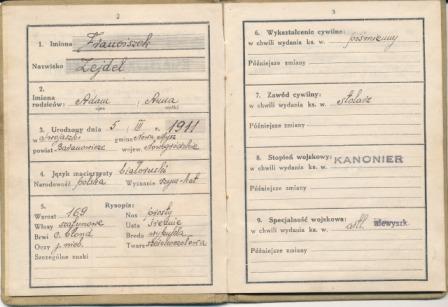 2
1. Imiona Franciszek
Nazwisko Zejdel
2.
Imiona rodziców: Adam Anna
ojca matki
3. Urodzony dnia 5 / III r. 1911
w gminie Nowa Mysz
powiat Baranowicze wojew. Nowogródzkie
4. Język macierzysty białoruski
Narodowość polska Wyznanie rzym-kat
5. Rysopis:
Wzrost 169 Nos prosty
Włosy szatynowe Usta średnie
Brwi c. blond Broda wypukła
Oczy p. nieb. Twarz
Szczególne znaki
3
6. Wykształcenie cywilne:
w chwili wydania ks. w. piśmienny
Późniejsze zmiany
7. Zawód cywilny:
w chwili wydania ks. w. stolarz
Późniejsze zmiany
8. Stopień wojskowy: KANONIER
w chwili wydania ks. w.
Późniejsze zmiany
9. Specjalność wojskowa:
w chwili wydania ks. w. niewyszk.
Późniejsze zmiany